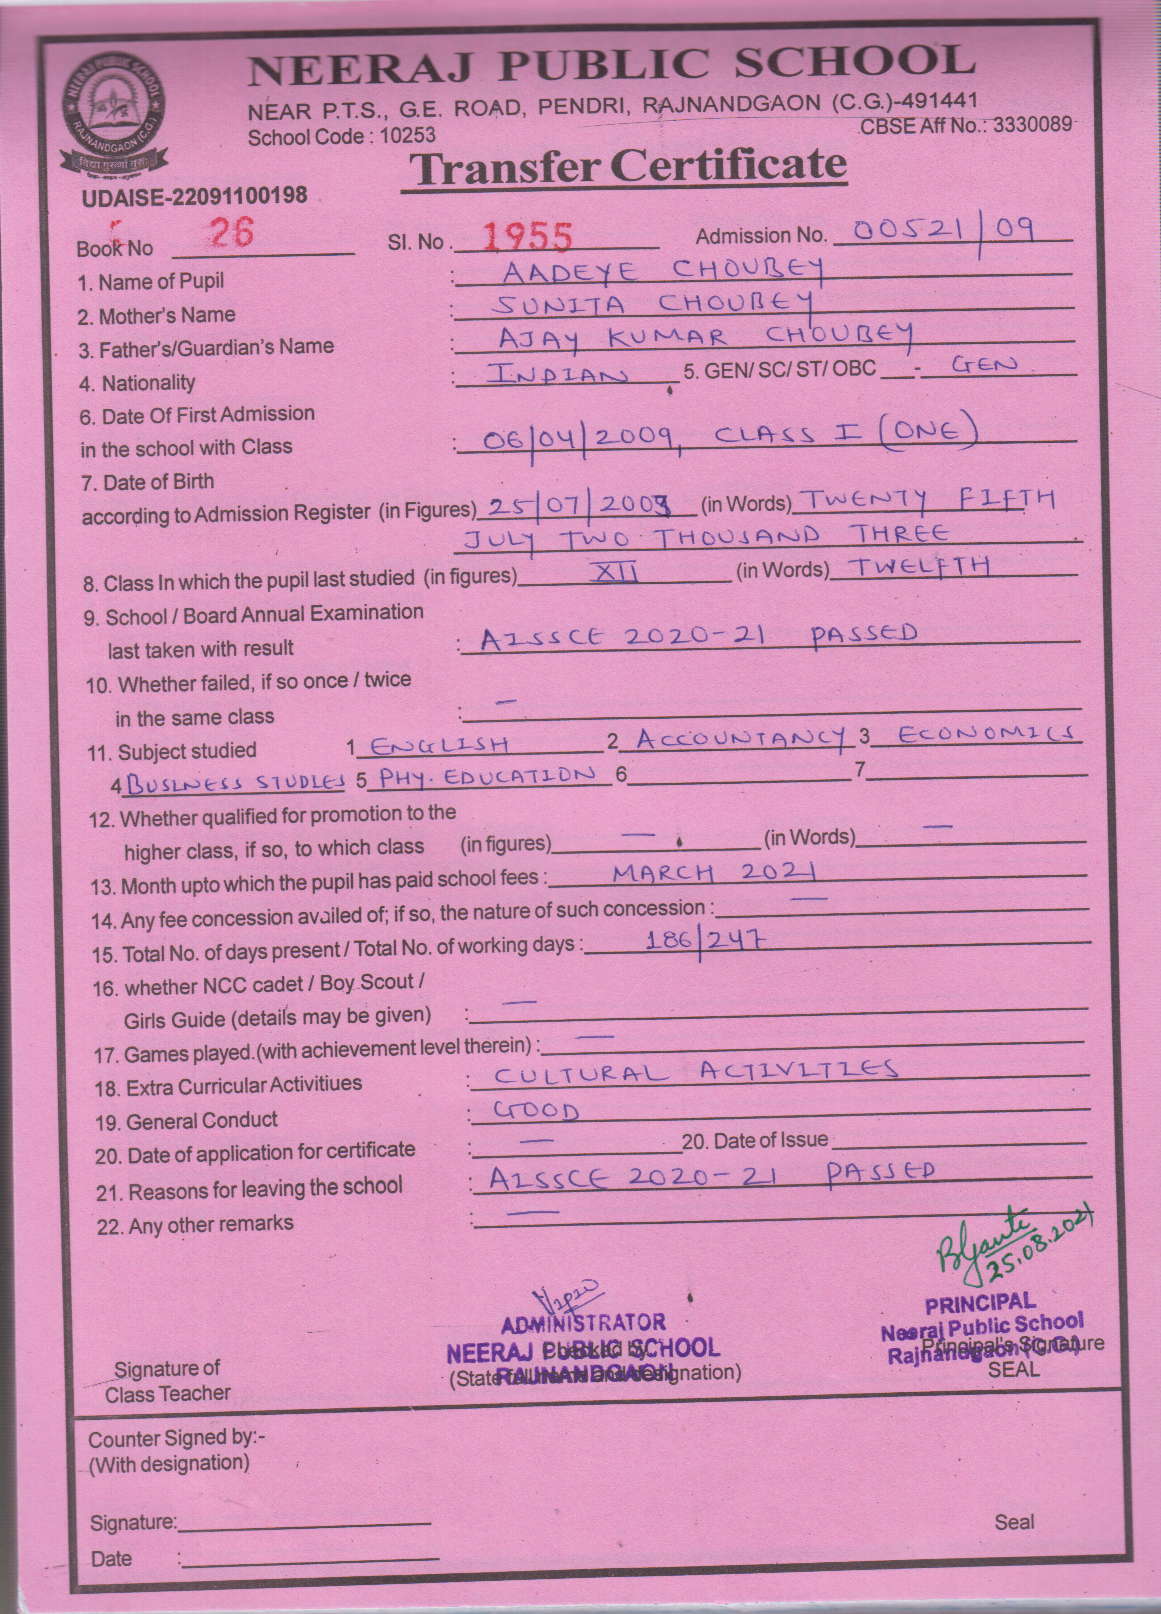 NEERAJ PUBLIC SCHOOL
NEAR P.T.S., G.E. ROAD, PENDRI, RAJNANDGAON (C.G.)-491441
School Code : 10253 CBSE Aff No.: 3330089
NEERAJ PUBLIC SCHOOL
RAJNANDGAON (C.G.)
Transfer Certificate
UDAISE-22091100198
Book No 26 Sl. No. 1955 Admission No. 00521/09
1. Name of Pupil : AADEYE CHOUBEY
2. Mother's Name : SUNITA CHOUBEY
3. Father's/Guardian's Name : AJAY KUMAR CHOUBEY
4. Nationality : INDIAN 5. GEN/ SC/ ST/ OBC - GEN
6. Date Of First Admission
in the school with Class : 06/04/2009, CLASS I (ONE)
7. Date of Birth
according to Admission Register (in Figures) 25/07/2003 (in Words) TWENTY FIFTH
JULY TWO THOUSAND THREE
8. Class In which the pupil last studied (in figures) XII (in Words) TWELFTH
9. School / Board Annual Examination
last taken with result : AISSCE 2020-21 PASSED
10. Whether failed, if so once / twice
in the same class : —
11. Subject studied 1 ENGLISH 2 ACCOUNTANCY 3 ECONOMICS
4 BUSINESS STUDIES 5 PHY. EDUCATION 6 7
12. Whether qualified for promotion to the
higher class, if so, to which class (in figures) — (in Words) —
13. Month upto which the pupil has paid school fees : MARCH 2021
14. Any fee concession availed of; if so, the nature of such concession : —
15. Total No. of days present / Total No. of working days : 186/247
16. whether NCC cadet / Boy Scout /
Girls Guide (details may be given) : —
17. Games played.(with achievement level therein) : —
18. Extra Curricular Activitiues : CULTURAL ACTIVITIES
19. General Conduct : GOOD
20. Date of application for certificate : — 20. Date of Issue
21. Reasons for leaving the school : AISSCE 2020-21 PASSED
22. Any other remarks : —
25.08.2021
ADMINISTRATOR
NEERAJ PUBLIC SCHOOL
RAJNANDGAON
PRINCIPAL
Neeraj Public School
Rajnandgaon (C.G.)
Signature of
Class Teacher
Checked by
(State full name and designation)
Principal's Signature
SEAL
Counter Signed by:-
(With designation)
Signature:
Seal
Date :